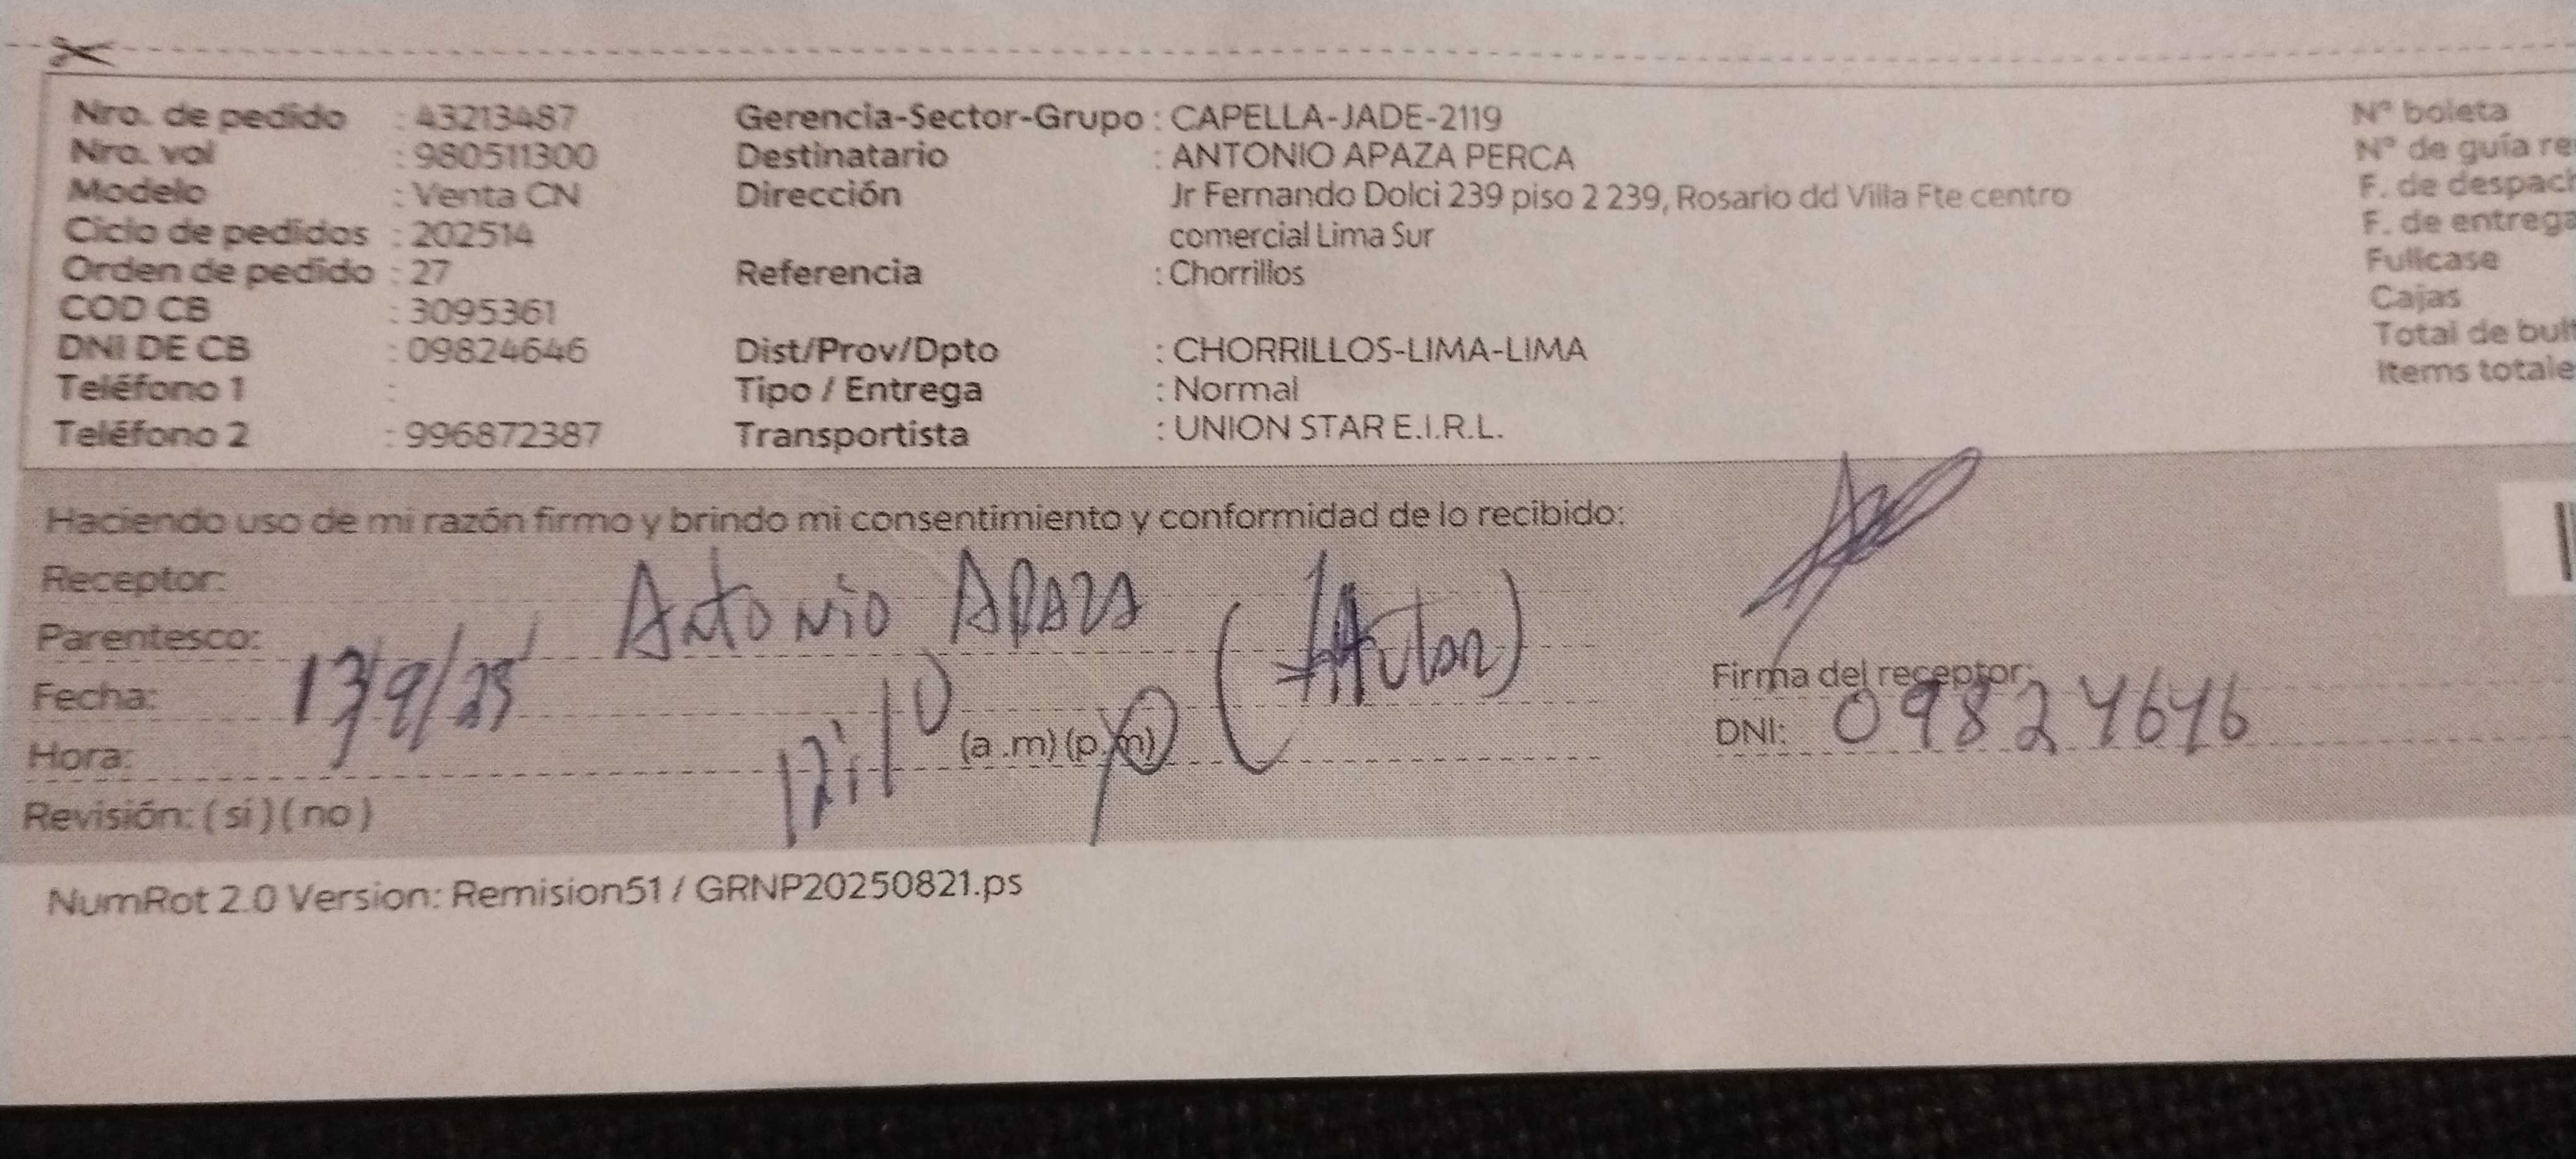 Nro. de pedido : 43213487 Gerencia-Sector-Grupo : CAPELLA-JADE-2119 N° boleta
Nro. vol : 980511300 Destinatario : ANTONIO APAZA PERCA N° de guía re
Modelo : Venta CN Dirección Jr Fernando Dolci 239 piso 2 239, Rosario dd Villa Fte centro F. de despach
Ciclo de pedidos : 202514 comercial Lima Sur F. de entrega
Orden de pedido : 27 Referencia : Chorrillos Fullcase
COD CB : 3095361 Cajas
DNI DE CB : 09824646 Dist/Prov/Dpto : CHORRILLOS-LIMA-LIMA Total de bult
Teléfono 1 : Tipo / Entrega : Normal Items totale
Teléfono 2 : 996872387 Transportista : UNION STAR E.I.R.L.
Haciendo uso de mi razón firmo y brindo mi consentimiento y conformidad de lo recibido:
Receptor: Antonio APAZA
Parentesco: (titular)
Fecha: 13/9/25 Firma del receptor:
Hora: 12:10 (a .m) (p. m) DNI: 09824646
Revisión: ( si ) ( no )
NumRot 2.0 Version: Remision51 / GRNP20250821.ps